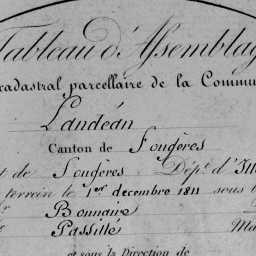 Tableau d'Assemblag
cadastral parcellaire de la Commu
Landéan
Canton de Fougères
t de Fougères Dép.t d'Ill
terrein le 1.er decembre 1811 sous l
Bonnaire
Passillé Ma
et sous la Direction de